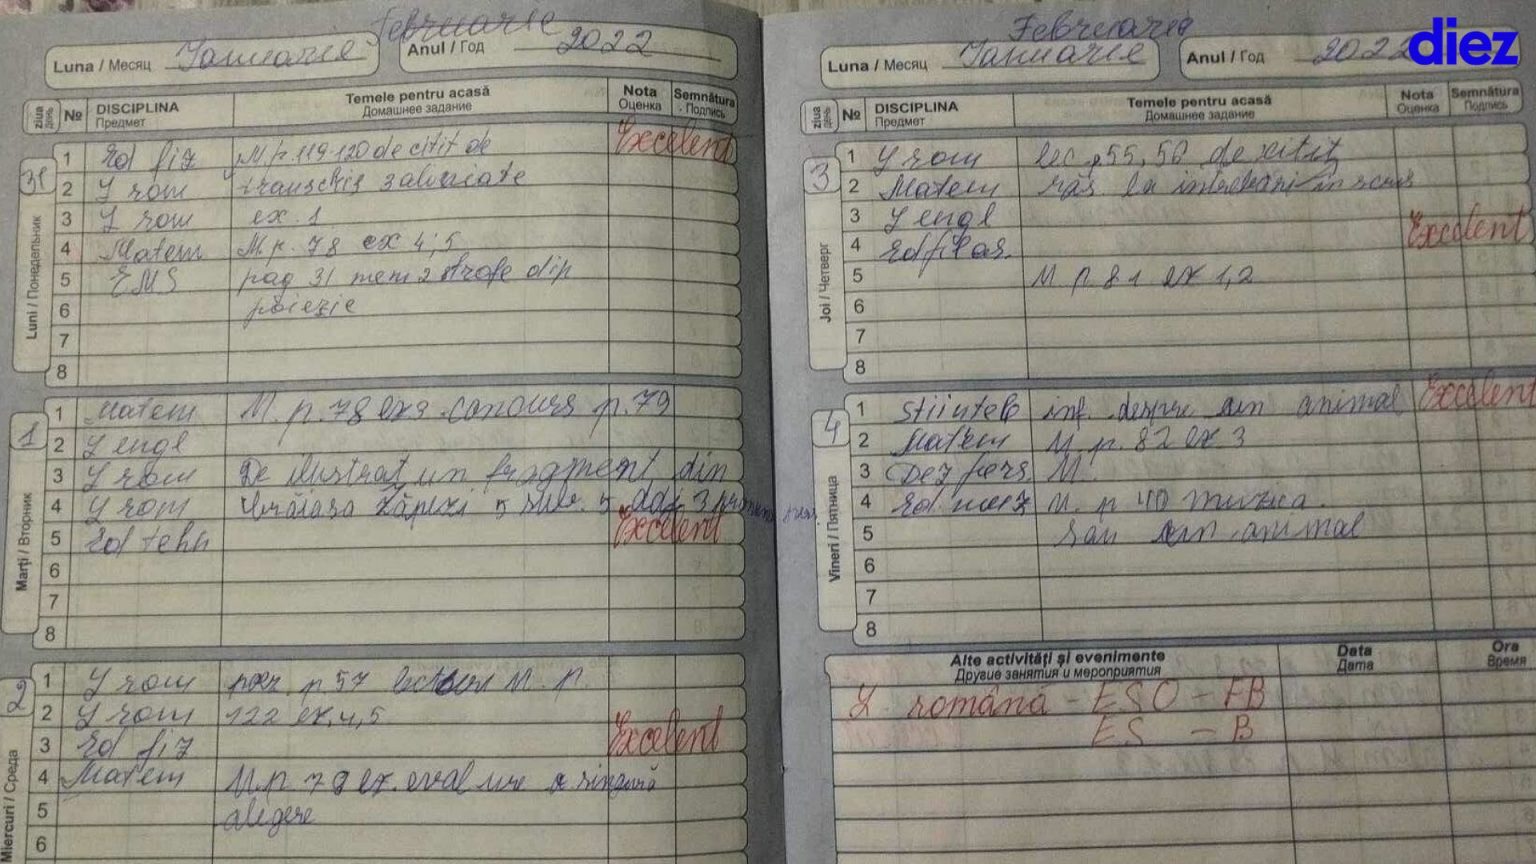 Februarie
Luna / Месяц Ianuarie Anul / Год 2022
ziua день № DISCIPLINA Предмет Temele pentru acasă Домашнее задание Nota Оценка Semnătura Подпись
31 Luni / Понедельник
1 Ed fiz M. p. 119-120 de citit de Excelent
2 L rom transcris 3 alineate
3 L rom ex. 1
4 Matem M. p. 78 ex 4; 5
5 EMS pag 31 mem 2 strofe din
6 poiezie
7
8
1 Marți / Вторник
1 Matem M. p. 78 ex 9 p. 79
2 L engl
3 L rom De ilustrat un fragment din
4 L rom Crăiasa Zăpezii 5 5 adj 3
5 Ed tehn Excelent
6
7
8
2 Miercuri / Среда
1 L rom p 57 M. p.
2 L rom 122 ex, 4, 5
3 Ed fiz Excelent
4 Matem M. p 79 ex. eval a singură
5 alegere
6
Februarie
Luna / Месяц Ianuarie Anul / Год 2022
diez
ziua день № DISCIPLINA Предмет Temele pentru acasă Домашнее задание Nota Оценка Semnătura Подпись
3 Joi / Четверг
1 L rom lec 55, 56 de citit
2 Matem răs la întrebări în scris
3 L engl Excelent
4
5 M p 81 ex 1, 2
6
7
8
4 Vineri / Пятница
1 Stiintele inf. despre un animal Excelent
2 Matem M. p. 82 ex 3
3 Dez pers M.
4 Ed. muz M. p 40 muzica.
5 sau un animal
6
7
8
Alte activități și evenimente Другие занятия и мероприятия Data Дата Ora Время
L. română - ESO - FB
ES - B